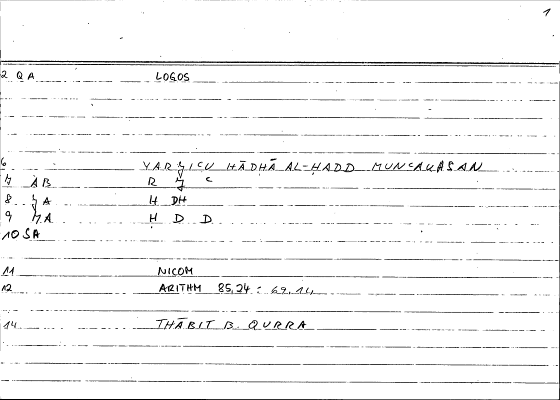 1
2 QA LOGOS
6 YARJICU HĀDHĀ AL-ḤADD MUNCAKASAN
7 AB R J C
8 JA H DH
9 JA Ḥ D D
10 SA
11 NICOM
12 ARITHM 85,24 = 69,14
14 THĀBIT B. QURRA